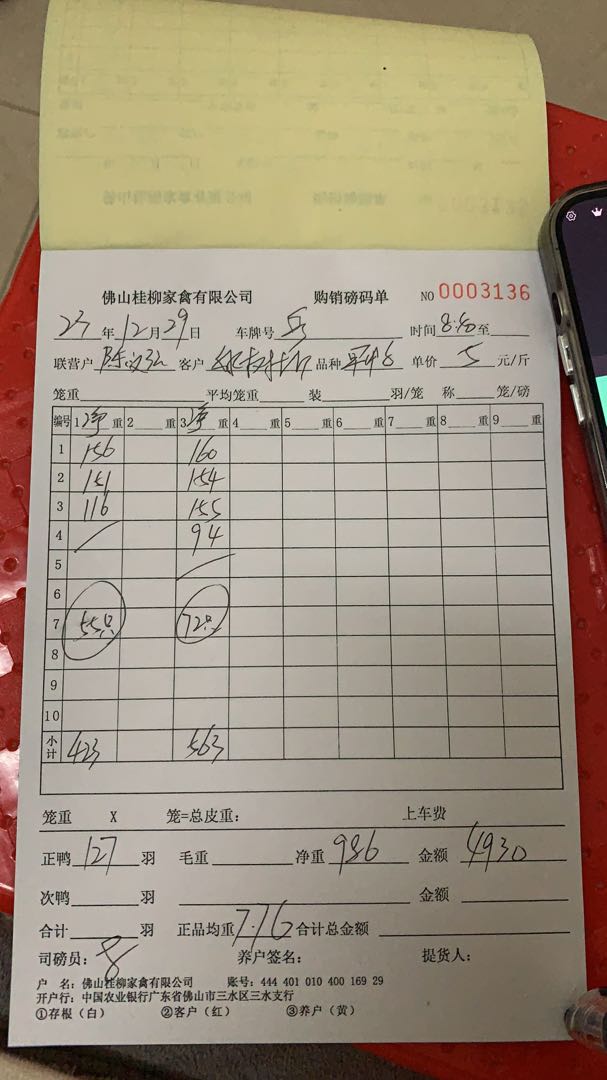 佛山桂柳家禽有限公司 购销磅码单 NO 0003136
23年12月29日 车牌号 时间8:50至
联营户 陈 客户 品种 单价 5 元/斤
笼重 平均笼重 装 羽/笼 称 笼/磅
编号 1净重 2重 3净重 4重 5重 6重 7重 8重 9重
1 156 160
2 151 154
3 116 155
4 94
5
6
7 55只 72只
8
9
10
小计 423 563
笼重 X 笼=总皮重: 上车费
正鸭 127 羽 毛重 净重 986 金额 4930
次鸭 羽 金额
合计 羽 正品均重 7.76 合计总金额
司磅员: 养户签名: 提货人:
户 名: 佛山桂柳家禽有限公司 账号: 444 401 010 400 169 29
开户行: 中国农业银行广东省佛山市三水区三水支行
①存根(白) ②客户(红) ③养户(黄)